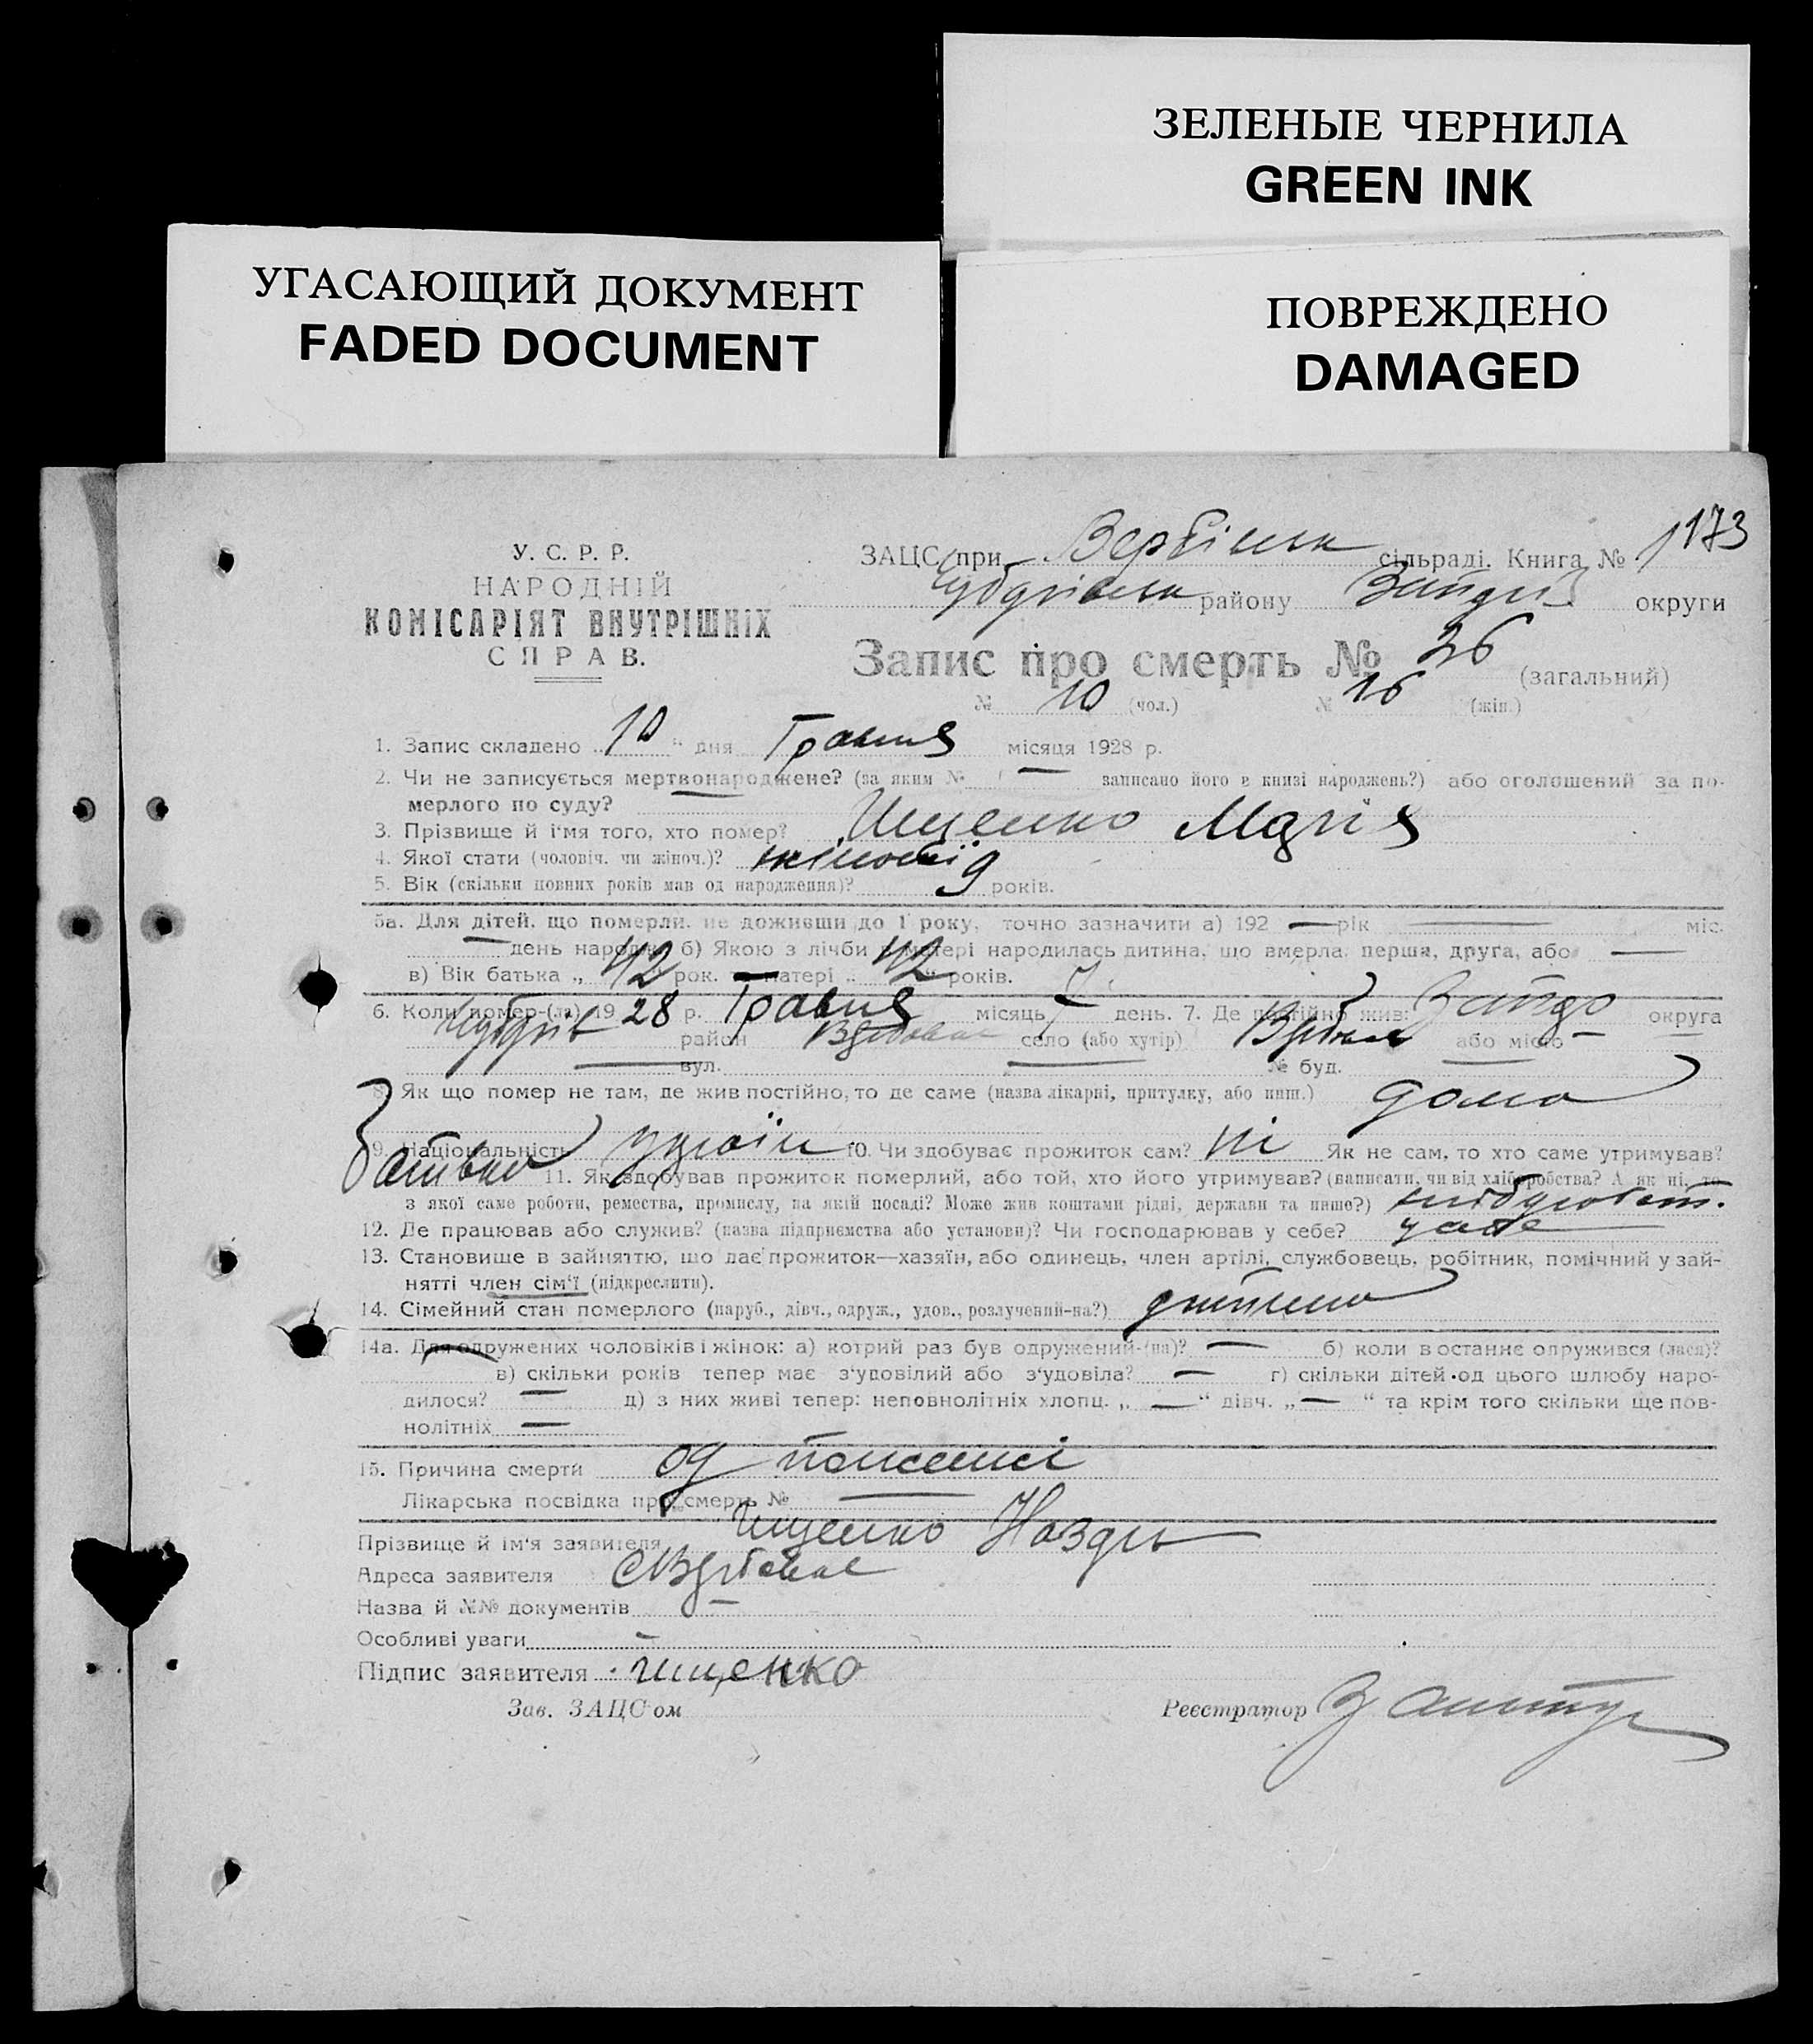 ЗЕЛЕНЫЕ ЧЕРНИЛА
GREEN INK
УГАСАЮЩИЙ ДОКУМЕНТ
FADED DOCUMENT
ПОВРЕЖДЕНО
DAMAGED
173
У. С. Р. Р.
НАРОДНІЙ
КОМІСАРІЯТ ВНУТРІШНІХ
СПРАВ.
ЗАЦС при сільраді. Книга № 1
району округи
Запис про смерть № 36 (загальний)
№ 10 (чол.) № 16 (жін.)
1. Запис складено „ 10 “ дня Травня місяця 1928 р.
2. Чи не записується мертвонароджене? (за яким № — записано його в книзі народжень?) або оголошений за по-
мерлого по суду?
3. Прізвище й ім'я того, хто помер? Ищенко Марія
4. Якої стати (чоловіч. чи жіноч.)?
5. Вік (скільки повних років мав од народження)? 9 років.
5а. Для дітей, що померли, не доживши до 1 року, точно зазначити а) 192 — рік — міс.
— день народж. б) Якою з лічби у матері народилась дитина, що вмерла: перша, друга, або —
в) Вік батька „ 42 “ рок. матері „ 42 “ років.
6. Коли помер-(ла) 19 28 р. Травня місяць 7 день. 7. Де постійно жив: округа
район село (або хутір) або місто —
— вул. — № буд.
8. Як що помер не там, де жив постійно, то де саме (назва лікарні, притулку, або инш.) дома
9. Національність 10. Чи здобуває прожиток сам? ні Як не сам, то хто саме утримував?
батько 11. Як здобував прожиток померлий, або той, хто його утримував? (написати, чи від хліборобства? А як ні, то
з якої саме роботи, ремества, промислу, на якій посаді? Може жив коштами рідні, держави та инше?)
12. Де працював або служив? (назва підприємства або установи)? Чи господарював у себе? у себе
13. Становище в зайняттю, що дає прожиток—хазяїн, або одинець, член артілі, службовець, робітник, помічний у зай-
нятті член сім'ї (підкреслити).
14. Сімейний стан померлого (паруб., дівч., одруж., удов., розлучений-на?) дитина
14а. Для одружених чоловіків і жінок: а) котрий раз був одружений-(на)? — б) коли востаннє одружився (лася)?
в) скільки років тепер має з'удовілий або з'удовіла? — г) скільки дітей од цього шлюбу наро-
дилося? — д) з них живі тепер: неповнолітніх хлопц. „ — “ дівч. „ — “ та крім того скільки ще пов-
нолітніх —
15. Причина смерти од
Лікарська посвідка про смерть № —
Прізвище й ім'я заявителя Ищенко Назарь
Адреса заявителя
Назва й №№ документів —
Особливі уваги —
Підпис заявителя Ищенко
Зав. ЗАЦС'ом Реєстратор